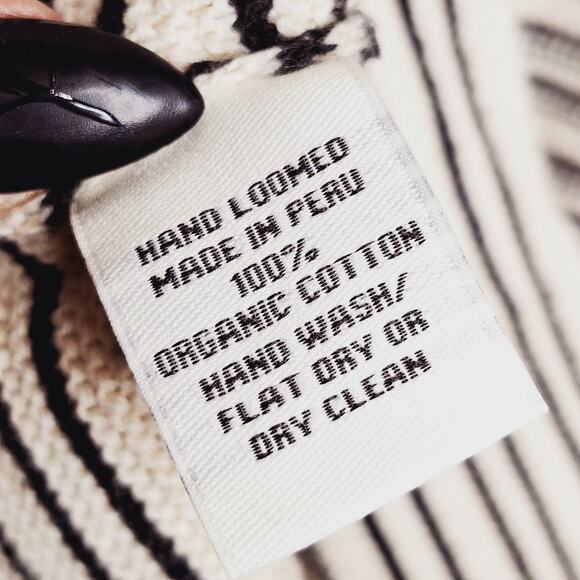 HAND LOOMED
MADE IN PERU
100%
ORGANIC COTTON
HAND WASH/
FLAT DRY OR
DRY CLEAN